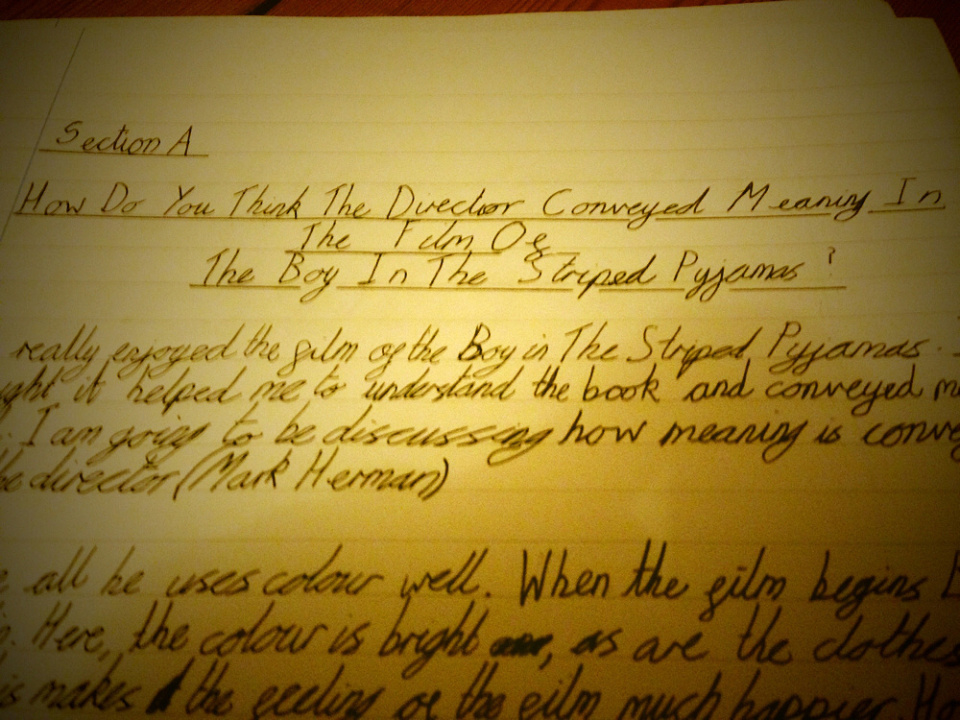 Section A
How Do You Think The Director Conveyed Meaning In
The Film Of
The Boy In The Striped Pyjamas?
really enjoyed the film of the Boy in The Striped Pyjamas.
it helped me to understand the book and conveyed
I am going to be discussing how meaning is
director (Mark Herman)
all he uses colour well. When the film begins
Here, the colour is bright, as are the clothes
makes the feeling of the film much happier